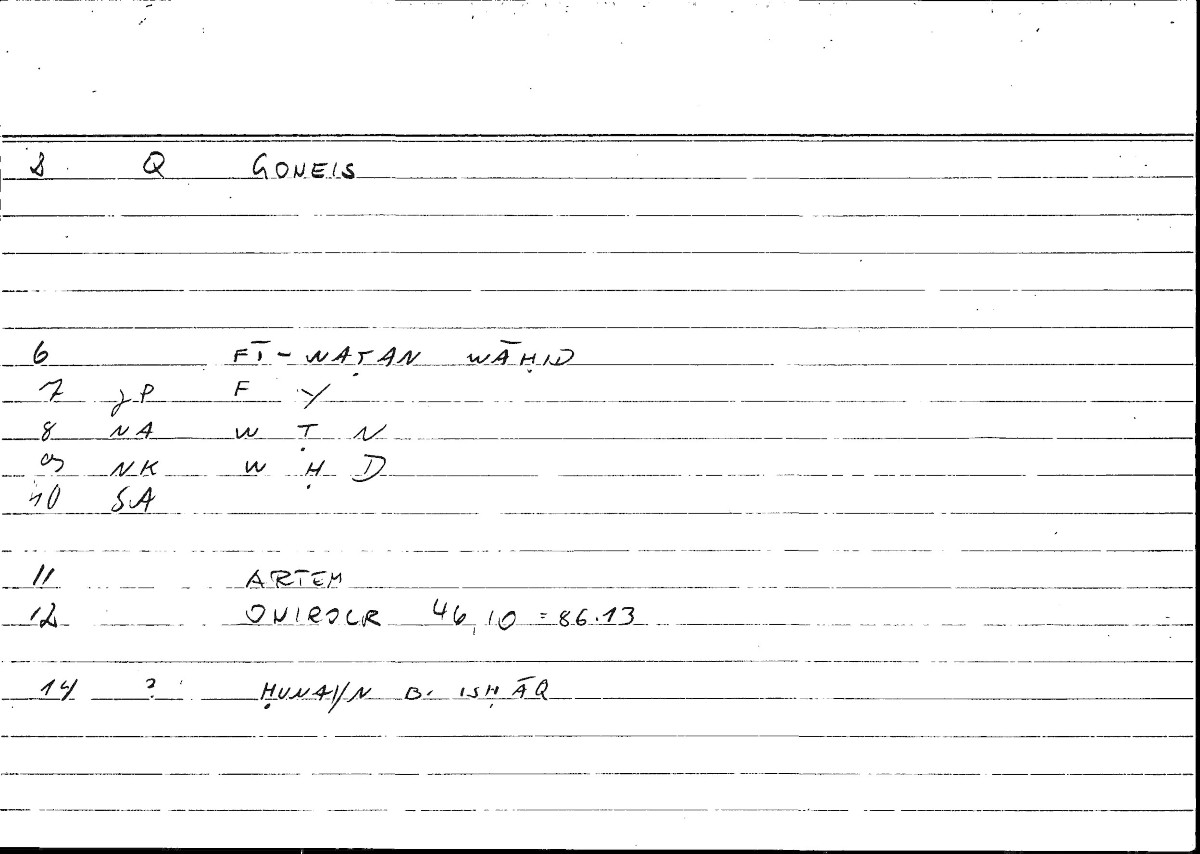 2 Q GONEIS
6 FĪ-WAṬAN WĀḤID
7 JP F Y
8 NA W Ṭ N
9 NK W Ḥ D
10 SA
11 ARTEM
12 ONIROCR 46,10 =86.13
14 ? ḤUNAYN B. ISḤĀQ